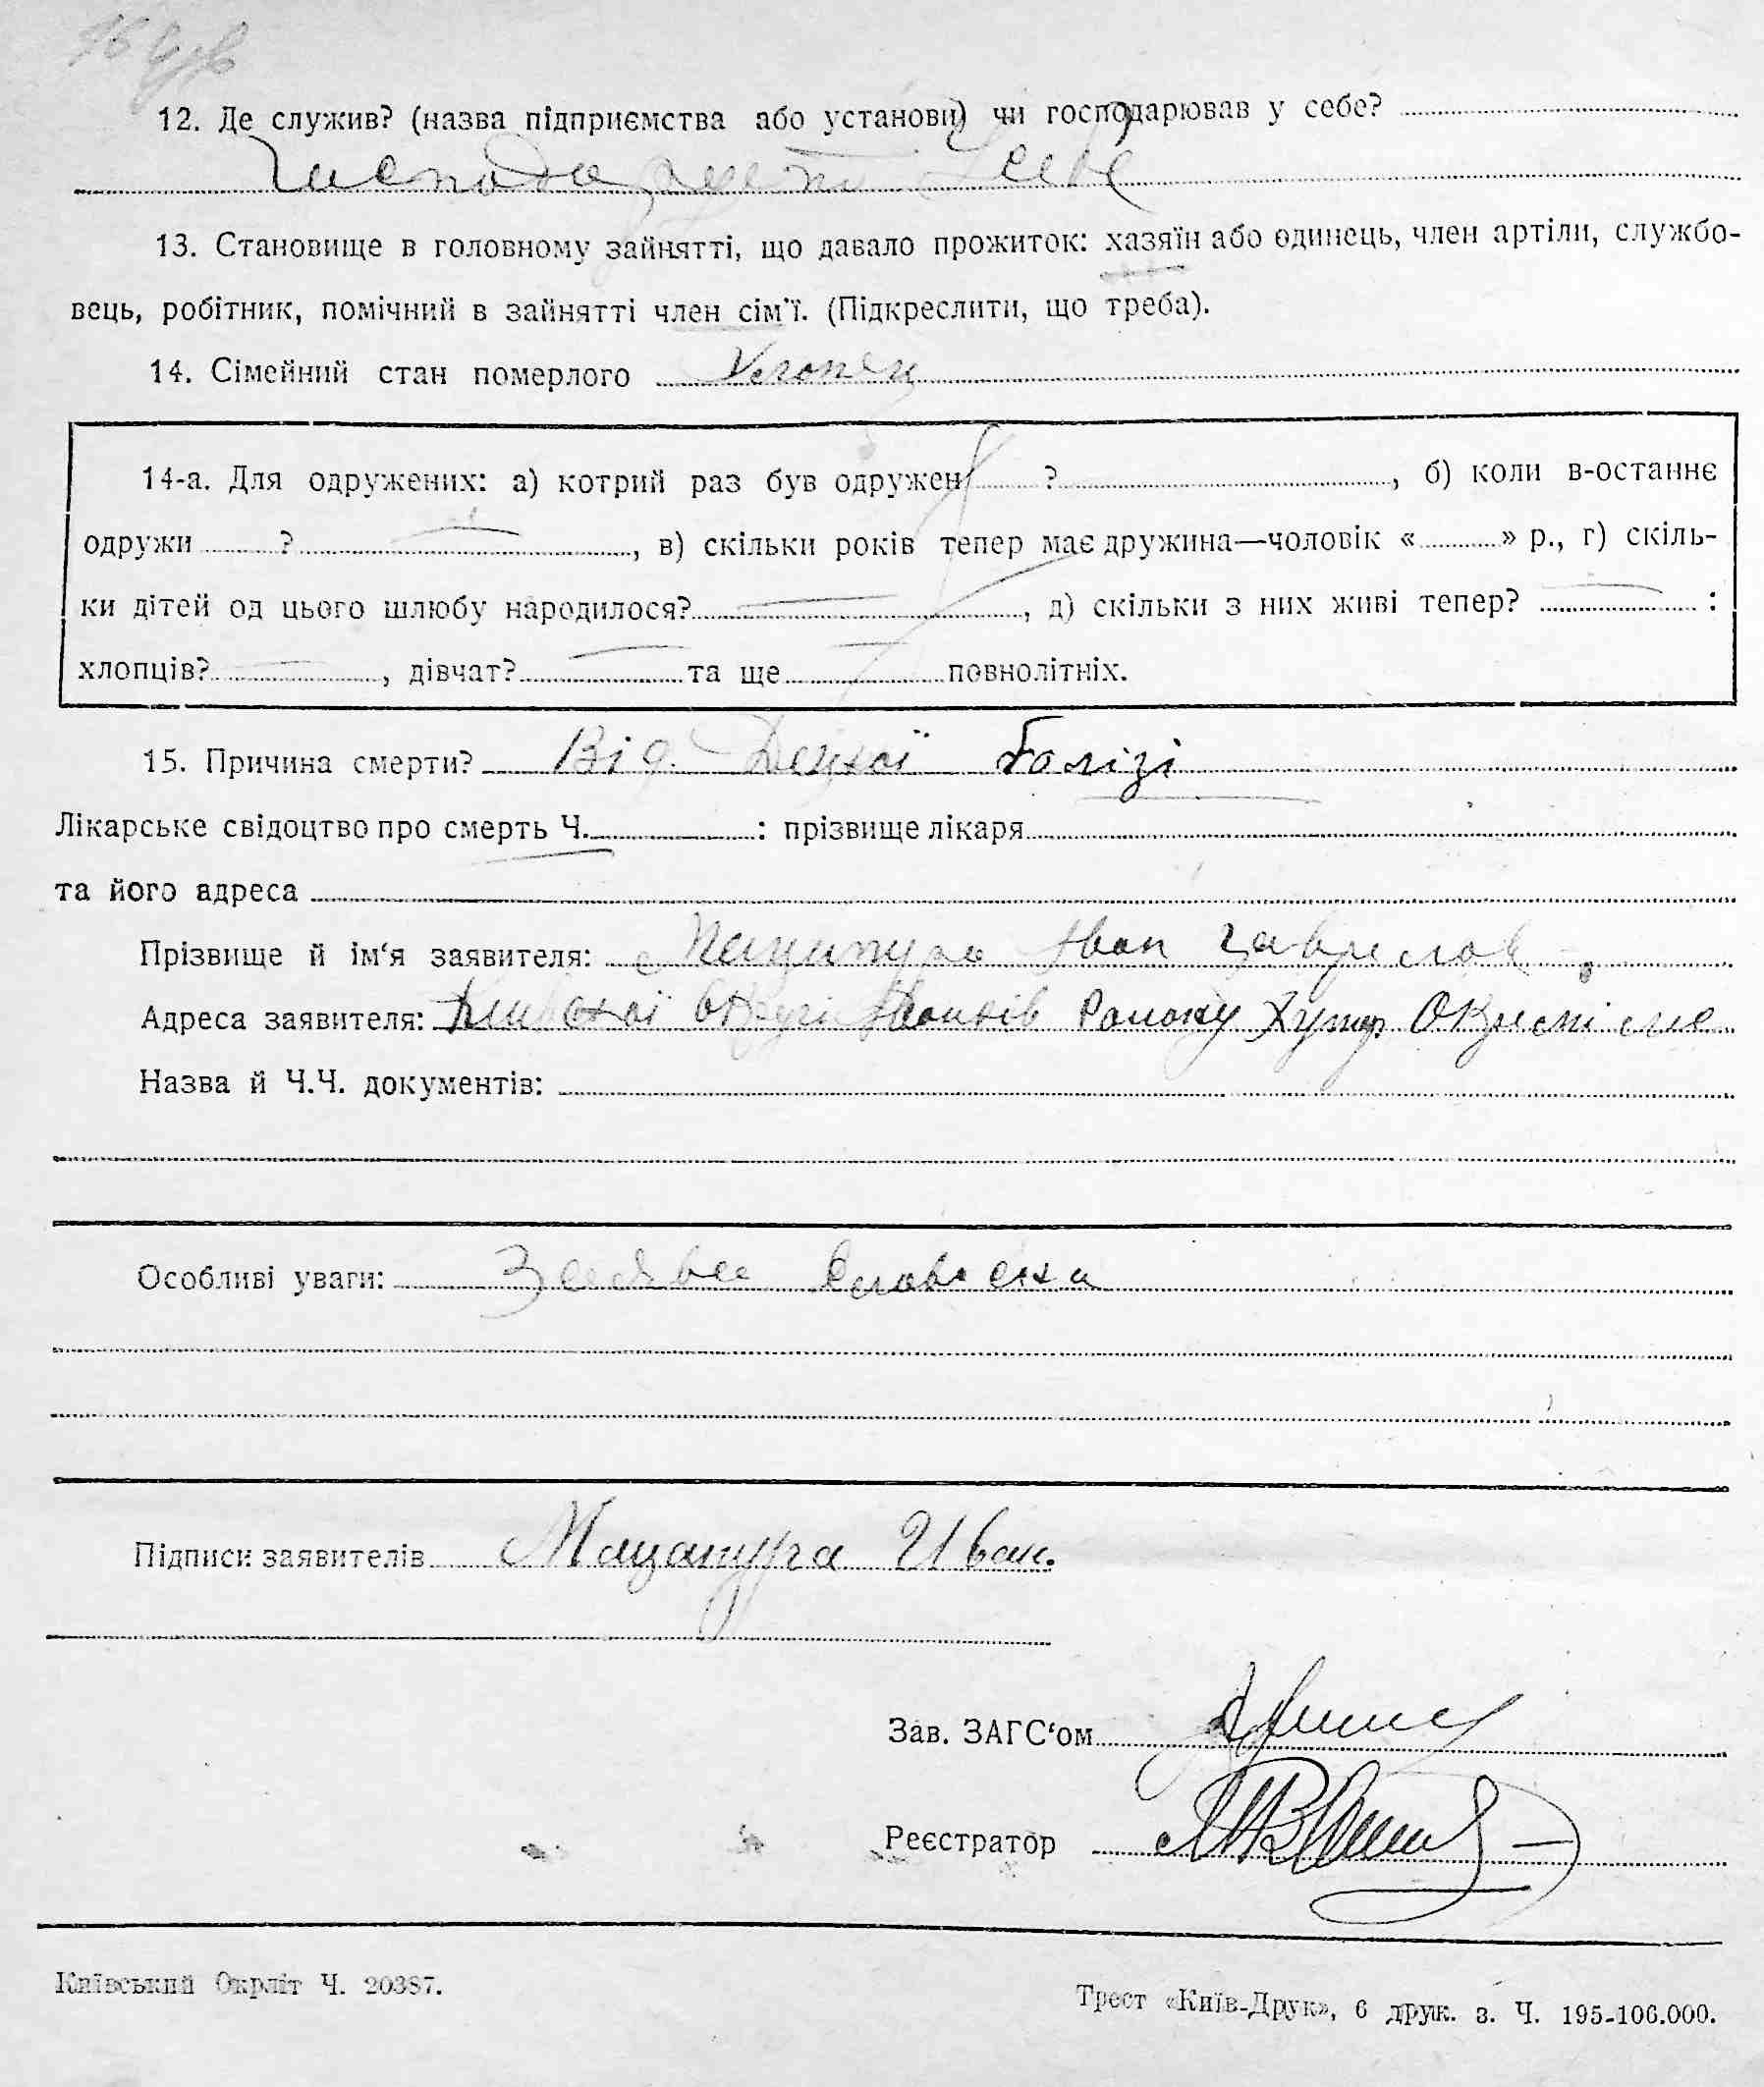 12. Де служив? (назва підприємства або установи) чи господарював у себе?
себе
13. Становище в головному зайнятті, що давало прожиток: хазяїн або одинець, член артіли, службо-
вець, робітник, помічний в зайнятті член сім'ї. (Підкреслити, що треба).
14. Сімейний стан померлого
14-а. Для одружених: а) котрий раз був одружен ?, б) коли в-останнє
одружи ?, в) скільки років тепер має дружина—чоловік « » р., г) скіль-
ки дітей од цього шлюбу народилося?, д) скільки з них живі тепер? :
хлопців? , дівчат? та ще повнолітніх.
15. Причина смерти? Від
Лікарське свідоцтво про смерть Ч. : прізвище лікаря
та його адреса
Прізвище й ім'я заявителя: Мацапура Іван
Адреса заявителя: Київської Округи Району Хутір
Назва й Ч.Ч. документів:
Особливі уваги: Заява словесна
Підписи заявителів Мацапура Иван.
Зав. ЗАГС'ом
Реєстратор
Київський Окрліт Ч. 20387.
Трест «Київ-Друк», 6 друк. з. Ч. 195-106.000.